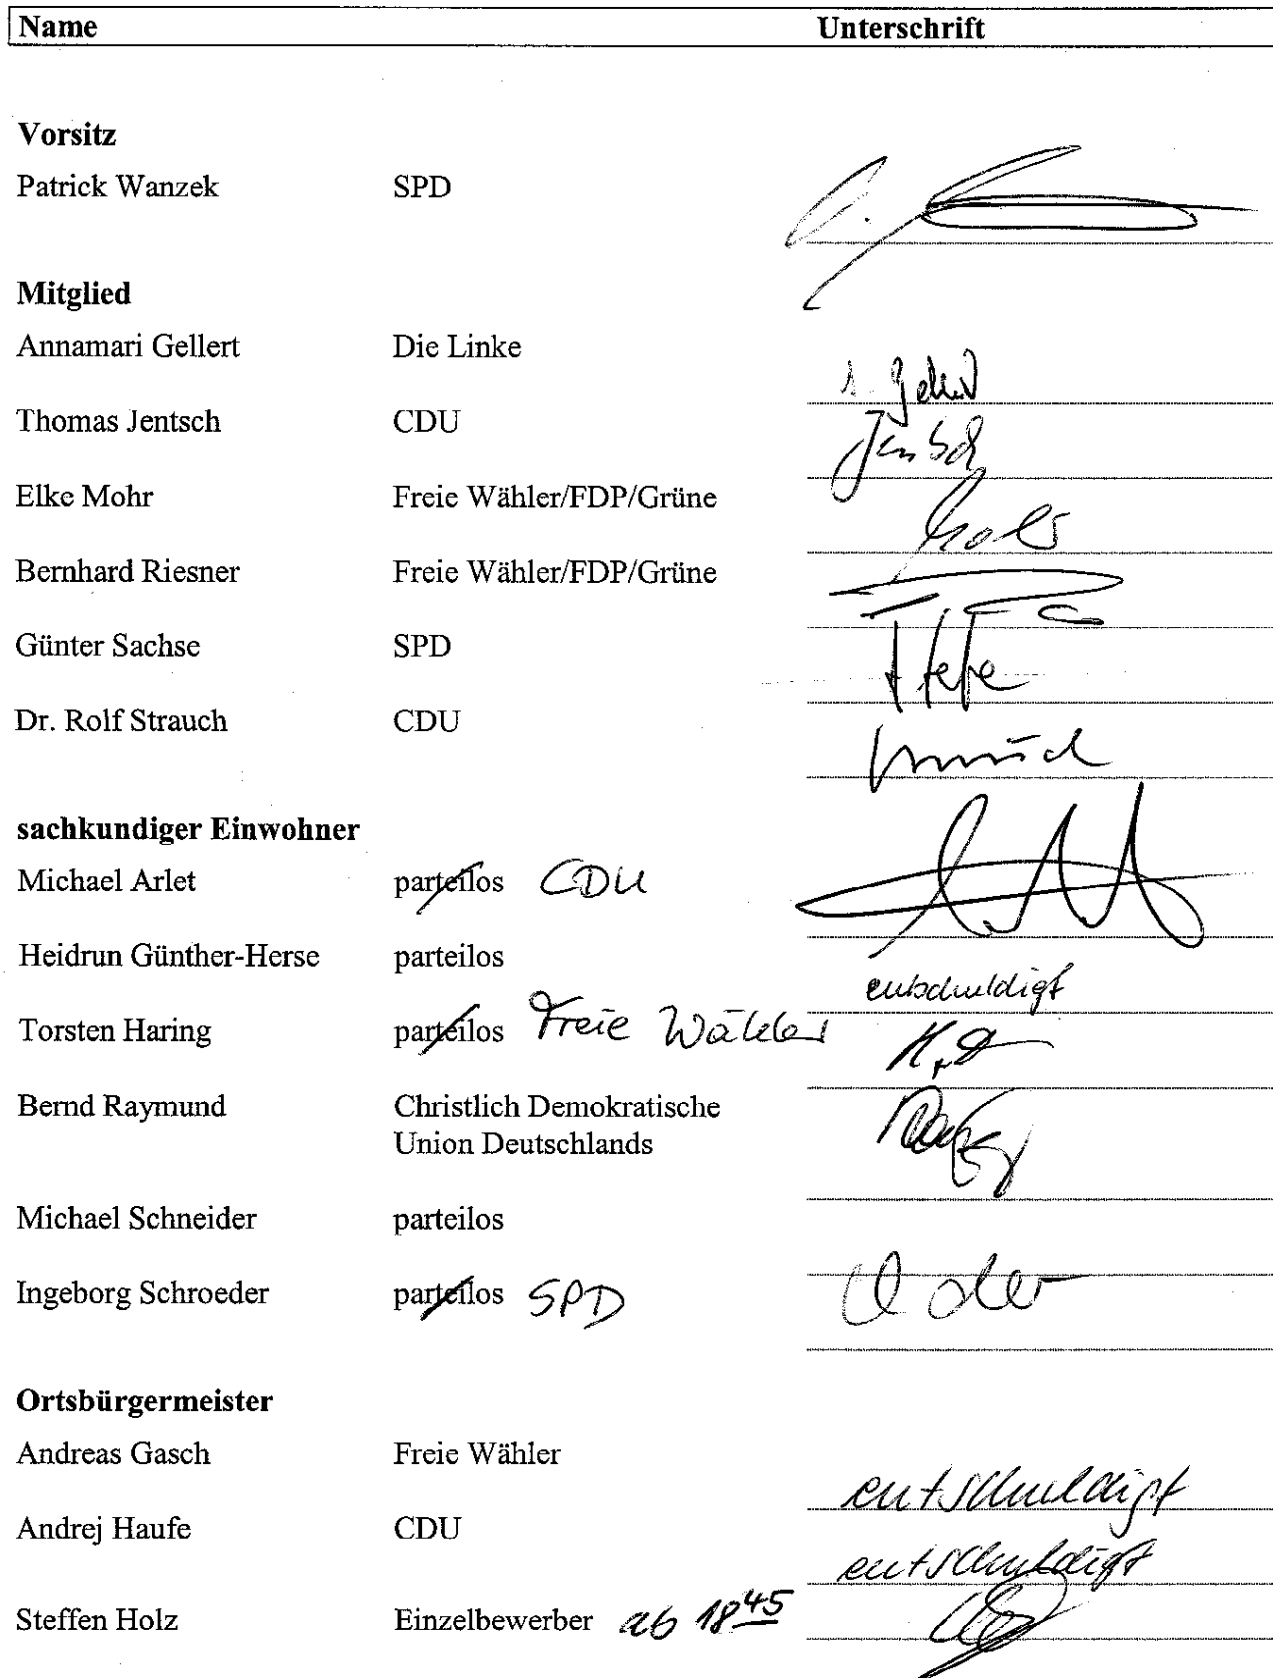 Name Unterschrift
Vorsitz
Patrick Wanzek SPD
Mitglied
Annamari Gellert Die Linke
Thomas Jentsch CDU
Elke Mohr Freie Wähler/FDP/Grüne
Bernhard Riesner Freie Wähler/FDP/Grüne
Günter Sachse SPD
Dr. Rolf Strauch CDU
sachkundiger Einwohner
Michael Arlet parteilos CDU
Heidrun Günther-Herse parteilos entschuldigt
Torsten Haring parteilos Freie Wähler
Bernd Raymund Christlich Demokratische
Union Deutschlands
Michael Schneider parteilos
Ingeborg Schroeder parteilos SPD
Ortsbürgermeister
Andreas Gasch Freie Wähler entschuldigt
Andrej Haufe CDU entschuldigt
Steffen Holz Einzelbewerber ab 18 45